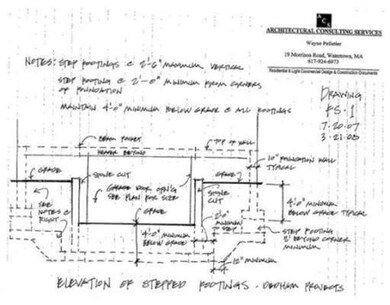 ACS
ARCHITECTURAL CONSULTING SERVICES
Wayne Pelletier
19 Morrison Road, Watertown, MA
617-924-6973
Residential & Light Commercial Design & Construction Documents
NOTES: STEP FOOTINGS @ 2'-6" MAXIMUM VERTICAL
STEP FOOTING @ 2'-0" MINIMUM FROM CORNERS
OF FOUNDATION
MAINTAIN 4'-0" MINIMUM BELOW GRADE @ ALL FOOTINGS
DRAWING
FS-1
7-20-07
3-21-08
BEAM POCKET
TOP OF WALL
GRADE
STONE CUT
GARAGE DOOR OPN'G
SEE PLAN FOR SIZE
STONE
CUT
GRADE
10" FOUNDATION WALL
TYPICAL
SEE
NOTES @
RIGHT
GRADE
4'-0" MINIMUM
BELOW GRADE
4'-0" MINIMUM
BELOW GRADE TYPICAL
STEP FOOTING
2' BEYOND CORNER
MINIMUM
12" MINIMUM
ELEVATION OF STEPPED FOOTINGS - DEDHAM PROJECTS